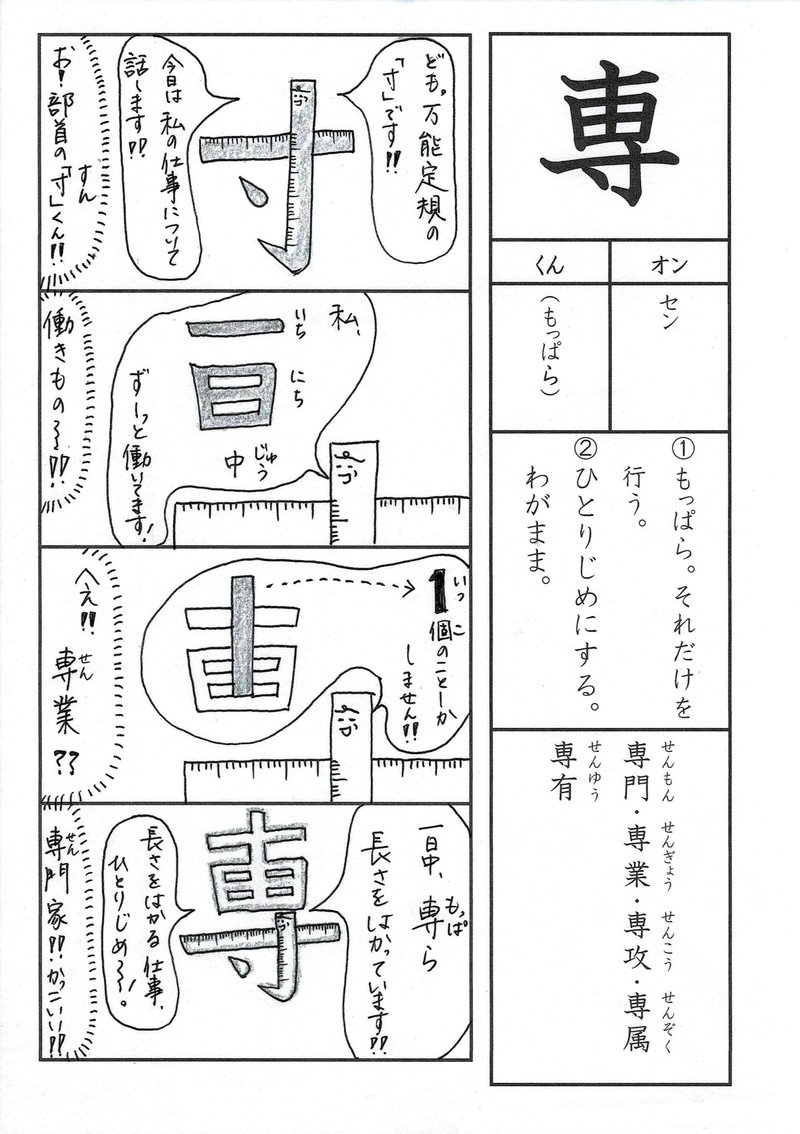 専
オン
くん
セン
（もっぱら）
①もっぱら。それだけを
行う。
②ひとりじめにする。
わがまま。
せんもん せんぎょう せんこう せんぞく
専門・専業・専攻・専属
せんゆう
専有
ども。万能定規の
「寸」です!!
今日は私の仕事について
話します!!
お！部首の「寸」くん!!
すん
私、
一
いち
日
にち
中
じゅう
ずーっと働いてます！
働きもの〜!!
1個のことーか
いっこ
しません!!
へぇ!!
専業??
せん
一日中、専ら
もっぱ
長さをはかっています!!
長さをはかる仕事、
ひとりじめ〜！。
専門家!!かっこいい!!
せん